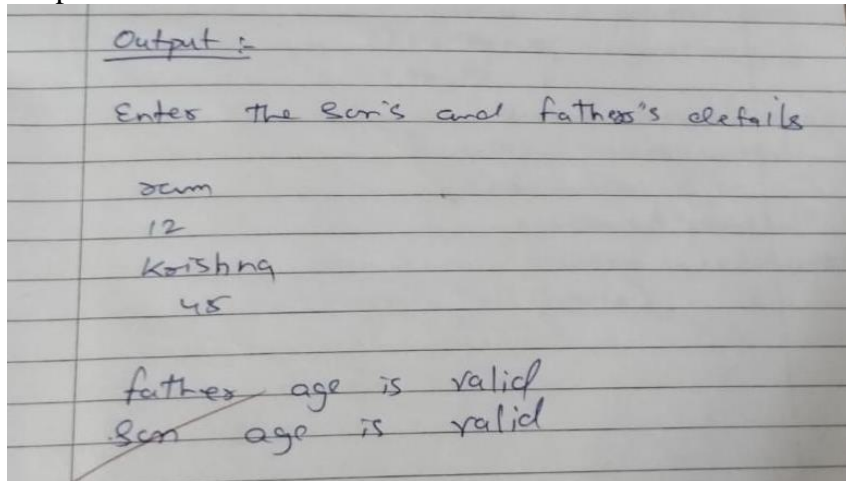 Output :-
Enter the Son's and father's details
ram
12
Krishna
45
father age is valid
Son age is valid